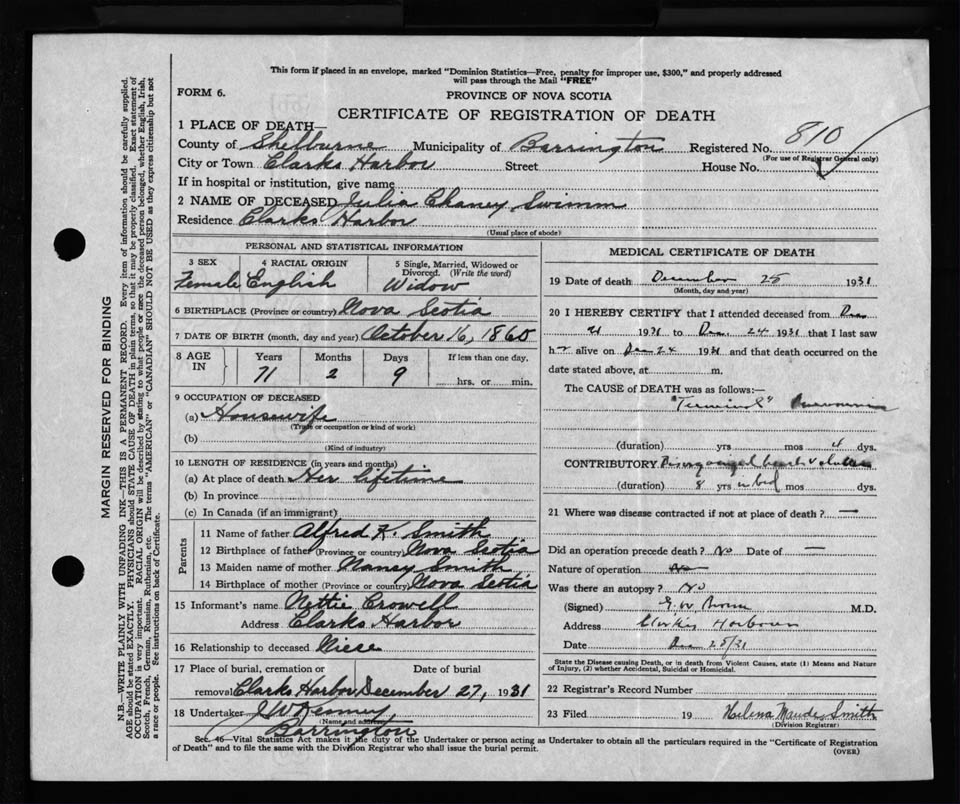 This form if placed in an envelope, marked "Dominion Statistics—Free, penalty for improper use, $300," and properly addressed
will pass through the Mail "FREE"
FORM 6.
PROVINCE OF NOVA SCOTIA
CERTIFICATE OF REGISTRATION OF DEATH
1 PLACE OF DEATH—
County of Shelburne Municipality of Barrington Registered No. 810
(For use of Registrar General only)
City or Town Clarks Harbor Street House No.
If in hospital or institution, give name
2 NAME OF DECEASED Julia Chaney Swimm
Residence Clarks Harbor
(Usual place of abode)
PERSONAL AND STATISTICAL INFORMATION
3 SEX 4 RACIAL ORIGIN 5 Single, Married, Widowed or
Divorced. (Write the word)
Female English Widow
6 BIRTHPLACE (Province or country) Nova Scotia
7 DATE OF BIRTH (month, day and year) October 16, 1860
8 AGE IN Years Months Days If less than one day.
71 2 9 hrs. or min.
9 OCCUPATION OF DECEASED
(a) Housewife
(Trade or occupation or kind of work)
(b)
(Kind of industry)
10 LENGTH OF RESIDENCE (in years and months)
(a) At place of death Her lifetime
(b) In province
(c) In Canada (if an immigrant)
Parents
11 Name of father Alfred K. Smith
12 Birthplace of father (Province or country) Nova Scotia
13 Maiden name of mother Nancy Smith
14 Birthplace of mother (Province or country) Nova Scotia
15 Informant's name Nettie Crowell
Address Clarks Harbor
16 Relationship to deceased Niece
17 Place of burial, cremation or Date of burial
removal Clarks Harbor December 27, 1931
18 Undertaker
(Name and address)
Barrington
MEDICAL CERTIFICATE OF DEATH
19 Date of death December 25 1931
(Month, day and year)
20 I HEREBY CERTIFY that I attended deceased from Dec
21 1931 to Dec. 24 1931 that I last saw
her alive on Dec 24 1931 and that death occurred on the
date stated above, at m.
The CAUSE OF DEATH was as follows:—
"Terminal" Pneumonia
(duration) yrs mos 4 dys.
CONTRIBUTORY
(duration) 8 yrs in bed mos dys.
21 Where was disease contracted if not at place of death? —
Did an operation precede death? No Date of —
Nature of operation No
Was there an autopsy? No
(Signed) M.D.
Address Clarks Harbour
Date Dec 25/31
State the Disease causing Death, or in death from Violent Causes, state (1) Means and Nature
of Injury, (2) whether Accidental, Suicidal or Homicidal.
22 Registrar's Record Number
23 Filed 19 Helena Maude Smith
(Division Registrar)
Sec. 46—Vital Statistics Act makes it the duty of the Undertaker or person acting as Undertaker to obtain all the particulars required in the "Certificate of Registration
of Death" and to file the same with the Division Registrar who shall issue the burial permit.
(OVER)
MARGIN RESERVED FOR BINDING
N.B.—WRITE PLAINLY WITH UNFADING INK—THIS IS A PERMANENT RECORD. Every item of information should be carefully supplied.
AGE should be stated EXACTLY. PHYSICIANS should STATE CAUSE OF DEATH in plain terms, so that it may be properly classified. Exact statement of
OCCUPATION is very important. RACIAL ORIGIN will be described by stating to what people or race the deceased person belonged, whether English, Irish,
Scotch, French, German, Russian, Ruthenian, etc. The terms "AMERICAN" or "CANADIAN" SHOULD NOT BE USED as they express citizenship but not
a race or people. See instructions on back of Certificate.